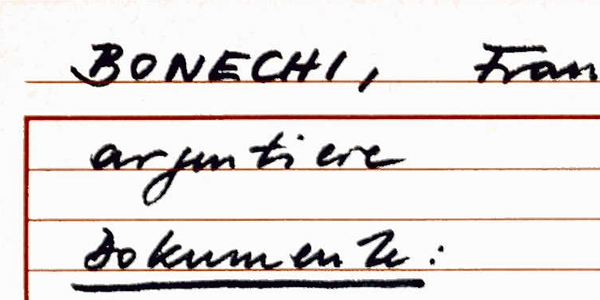 BONECHI, Fran
argentiere
Dokumente: